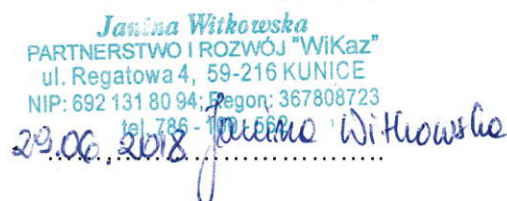 Janina Witkowska
PARTNERSTWO I ROZWÓJ "WiKaz"
ul. Regatowa 4, 59-216 KUNICE
NIP: 692 131 80 94; Regon: 367808723
tel. 786 -
29.06.2018 Janina Witkowska